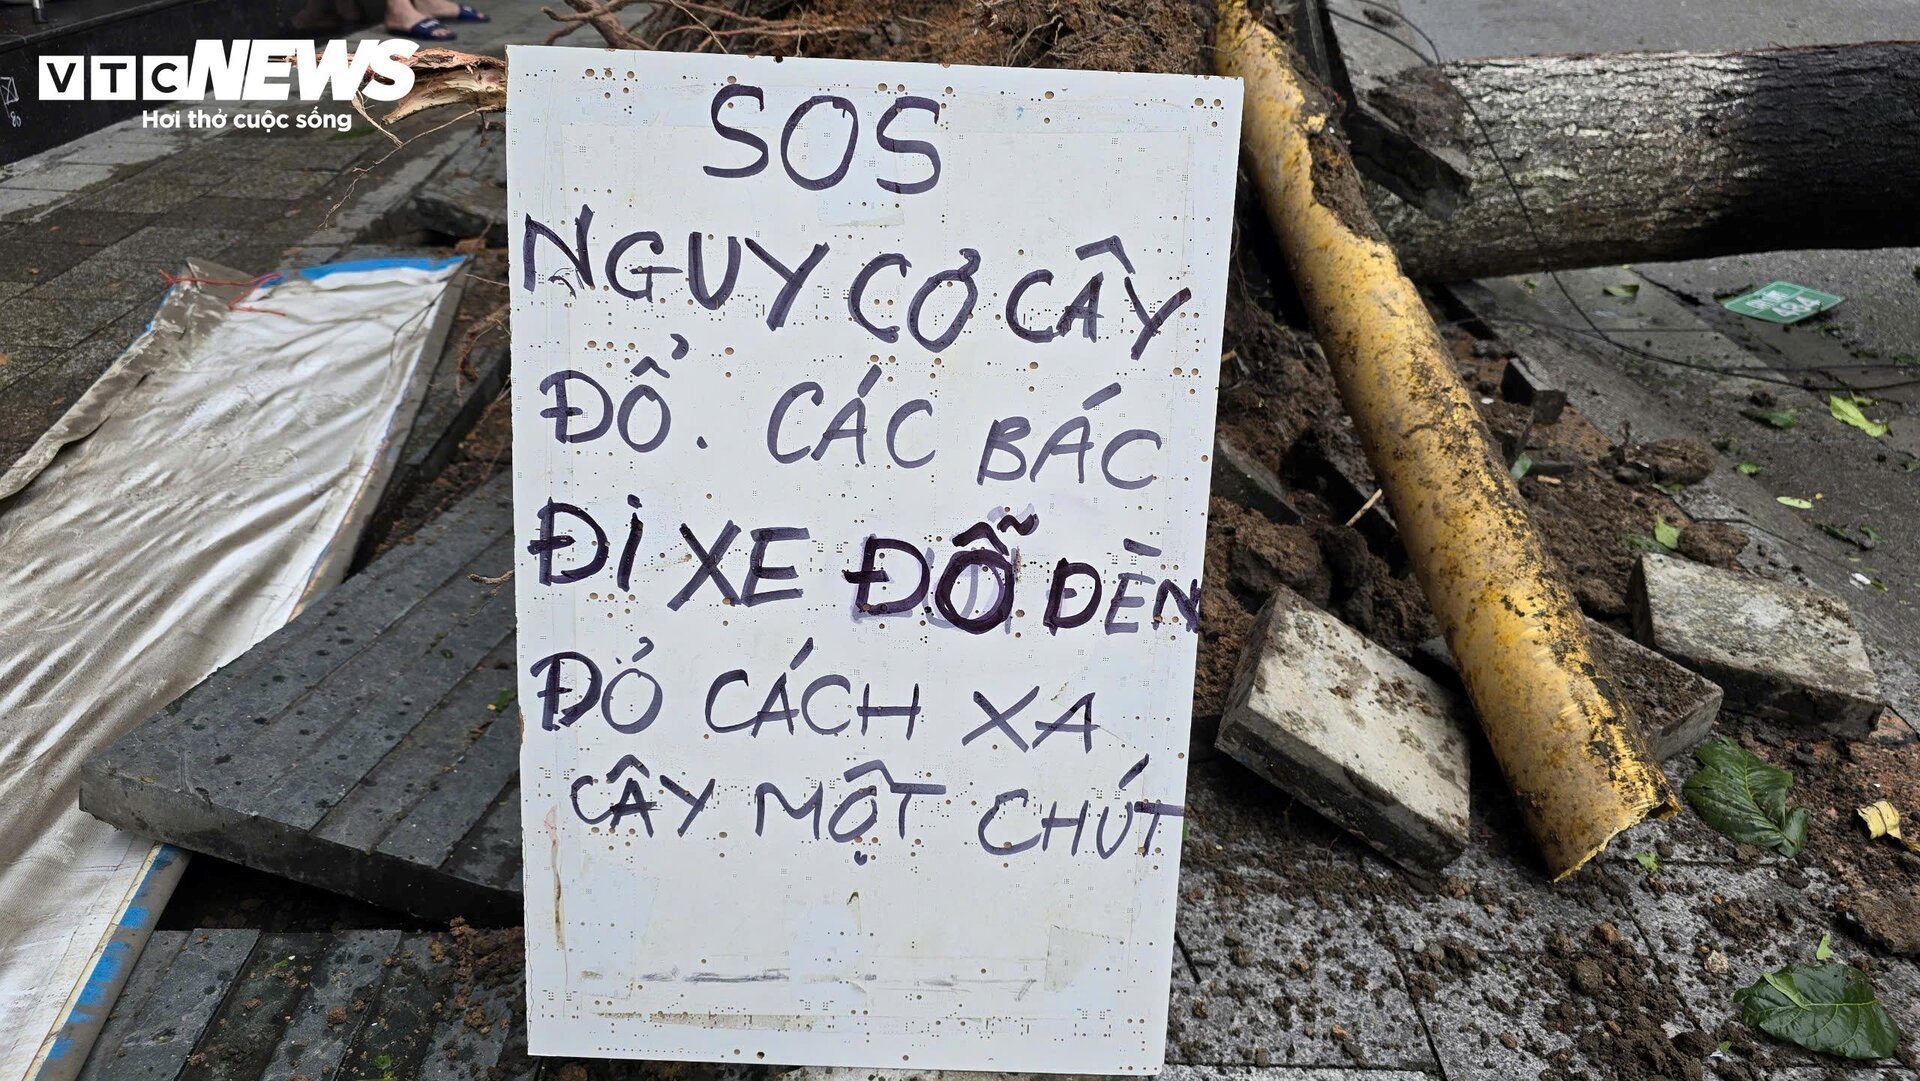 VTC NEWS
Hơi thở cuộc sống
SOS
NGUY CƠ CÂY
ĐỔ. CÁC BÁC
ĐI XE ĐỖ ĐÈN
ĐỎ CÁCH XA
CÂY MỘT CHÚT